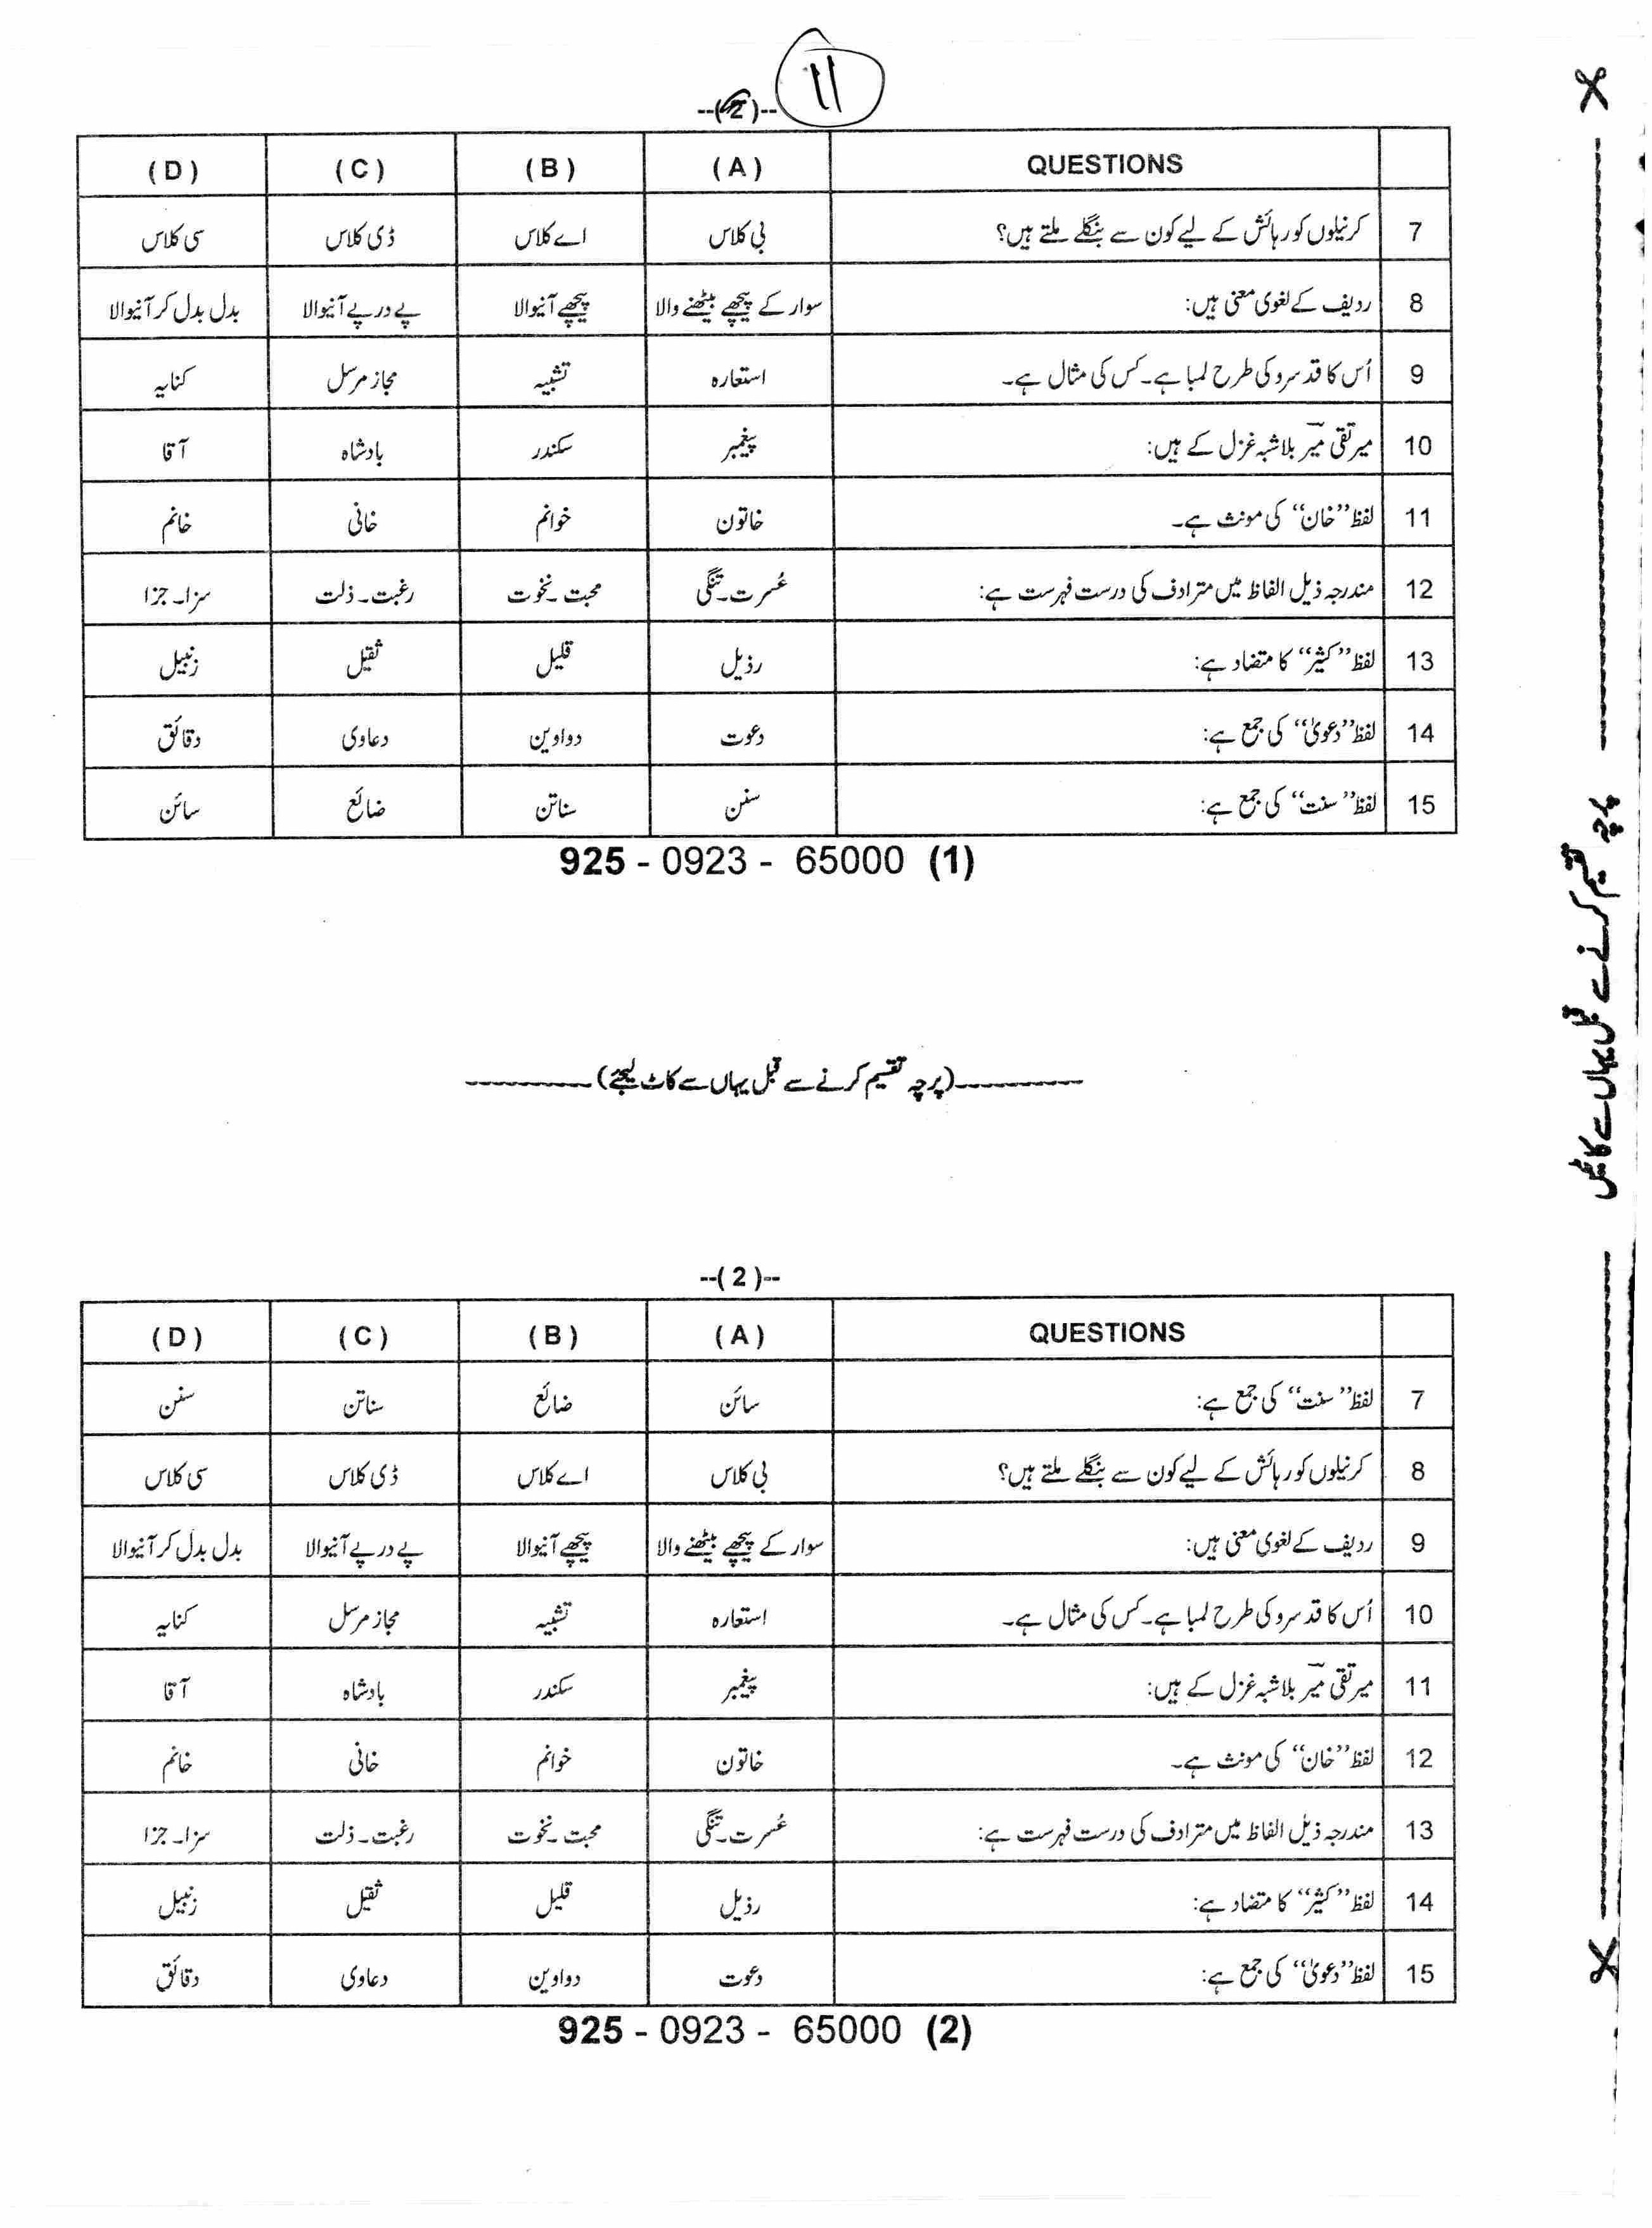 11
--(2)--
QUESTIONS (A) (B) (C) (D)
7 کرنیلوں کو رہائش کے لیے کون سے بنگلے ملتے ہیں؟ بی کلاس اے کلاس ڈی کلاس سی کلاس
8 ردیف کے لغوی معنی ہیں: سوار کے پیچھے بیٹھنے والا پیچھے آنیوالا پے در پے آنیوالا بدل بدل کر آنیوالا
9 اُس کا قد سرو کی طرح لمبا ہے۔ کس کی مثال ہے۔ استعارہ تشبیہ مجاز مرسل کنایہ
10 میر تقی میرؔ بلاشبہ غزل کے ہیں: پیغمبر سکندر بادشاہ آقا
11 لفظ ”خان“ کی مونث ہے۔ خاتون خوانم خانی خانم
12 مندرجہ ذیل الفاظ میں مترادف کی درست فہرست ہے: عُسرت۔تنگی محبت۔نخوت رغبت۔ذلت سزا۔جزا
13 لفظ ”کثیر“ کا متضاد ہے: رذیل قلیل ثقیل زنبیل
14 لفظ ”دعویٰ“ کی جمع ہے: دعوت دواوین دعاوی دقائق
15 لفظ ”سنت“ کی جمع ہے: سنن سناتن ضائع سائن
925 - 0923 - 65000 (1)
(پرچہ تقسیم کرنے سے قبل یہاں سے کاٹ لیجئے)
--(2)--
QUESTIONS (A) (B) (C) (D)
7 لفظ ”سنت“ کی جمع ہے: سائن ضائع سناتن سنن
8 کرنیلوں کو رہائش کے لیے کون سے بنگلے ملتے ہیں؟ بی کلاس اے کلاس ڈی کلاس سی کلاس
9 ردیف کے لغوی معنی ہیں: سوار کے پیچھے بیٹھنے والا پیچھے آنیوالا پے در پے آنیوالا بدل بدل کر آنیوالا
10 اُس کا قد سرو کی طرح لمبا ہے۔ کس کی مثال ہے۔ استعارہ تشبیہ مجاز مرسل کنایہ
11 میر تقی میرؔ بلاشبہ غزل کے ہیں: پیغمبر سکندر بادشاہ آقا
12 لفظ ”خان“ کی مونث ہے۔ خاتون خوانم خانی خانم
13 مندرجہ ذیل الفاظ میں مترادف کی درست فہرست ہے: عُسرت۔تنگی محبت۔نخوت رغبت۔ذلت سزا۔جزا
14 لفظ ”کثیر“ کا متضاد ہے: رذیل قلیل ثقیل زنبیل
15 لفظ ”دعویٰ“ کی جمع ہے: دعوت دواوین دعاوی دقائق
925 - 0923 - 65000 (2)
پرچہ تقسیم کرنے سے قبل یہاں سے کاٹیں